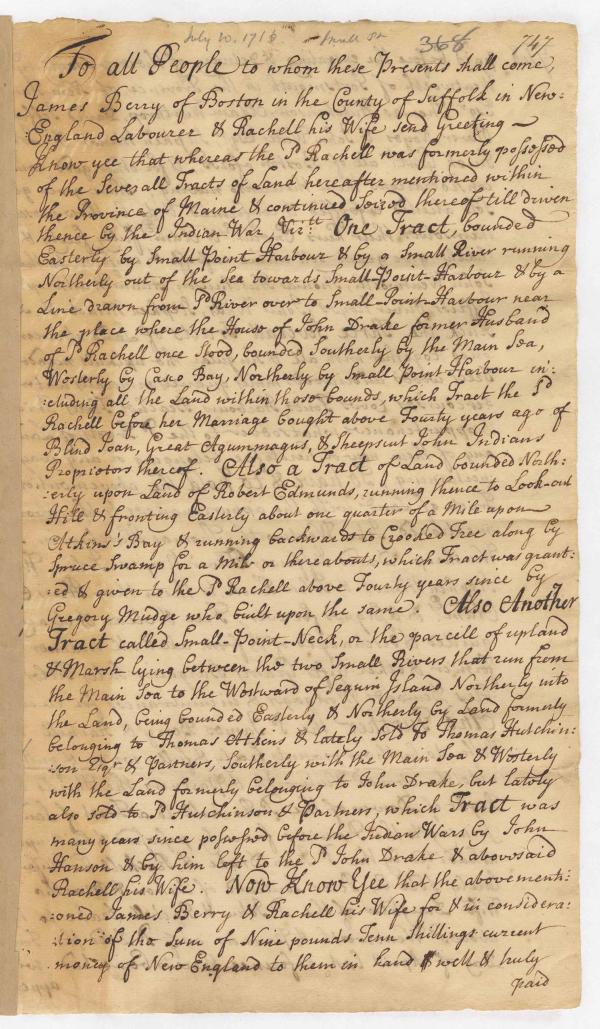 July 10. 1716 Small Pt
368 747
To all People to whom these Presents shall come,
James Berry of Boston in the County of Suffolk in New=
=England Labourer & Rachell his Wife send Greeting ~
Know yee that whereas the Sd Rachell was formerly possessed
of the Severall Tracts of Land hereafter mentioned within
the Province of Maine & continued Seized thereof till driven
thence by the Indian War, Vizt: One Tract, bounded
Easterly by Small Point Harbour & by a Small River running
Northerly out of the Sea towards Small-Point-Harbour & by a
Line drawn from Sd River over to Small-Point-Harbour near
the place where the House of John Drake former Husband
of Sd Rachell once Stood, bounded Southerly by the Main Sea,
Westerly by Casco Bay, Northerly by Small Point Harbour in=
=cluding all the Land within those bounds, which Tract the Sd
Rachell before her Marriage bought above Fourty years ago of
Blind Joan, Great Agummagus, & Sheepscut John Indians
Proprietors thereof. Also a Tract of Land bounded North=
=erly upon Land of Robert Edmunds, running thence to Look-out
Hill & fronting Easterly about one quarter of a Mile upon
Atkins's Bay & running backwards to Crooked Tree along by
Spruce Swamp for a Mile or thereabouts, which Tract was grant=
=ed & given to the Sd Rachell above Fourty years since by
Gregory Mudge who built upon the same. Also Another
Tract called Small-Point-Neck, or the parcell of upland
& Marsh lying between the two Small Rivers that run from
the Main Sea to the Westward of Seguin Island Northerly into
the Land, being bounded Easterly & Northerly by Land formerly
belonging to Thomas Atkins & lately sold to Thomas Hutchin=
=son Esqr & Partners, Southerly with the Main Sea & Westerly
with the Land formerly belonging to John Drake, but lately
also sold to Sd Hutchinson & Partners, which Tract was
many years since possessed before the Indian Wars by John
Hanson & by him left to the Sd John Drake & abovesaid
Rachell his Wife. Now Know Yee that the abovementi=
=oned James Berry & Rachell his Wife for & in considera=
=tion of the Sum of Nine pounds Tenn Shillings current
money of New England to them in hand well & truly
paid